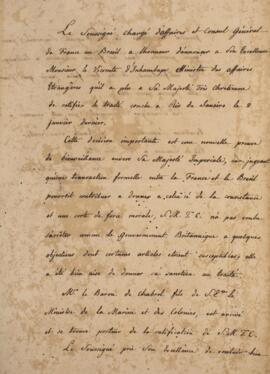 Le Soussigné chargé d'affaires et Consul Général
de France au Brésil a l'honneur d'annoncer à Son Excellence
Monsieur le Vicomte d'Inhambupe Ministre des affaires
Etrangères qu'il a plu à Sa Majesté Très Chrétienne
de ratifier le traité conclu à Rio de Janeiro le 8
janvier dernier.
Cette décision importante est une nouvelle preuve
de bienveillance envers Sa Majesté Impériale, en jugeant
qu'une transaction formelle entre la France et le Brésil
pourrait contribuer à donner à celui-ci de la consistance
et une sorte de force morale, S. M. T. C. n'a pas voulu
s'arrêter comme le Gouvernement Britannique à quelques
objections dont certains articles étaient susceptibles; elle
a été bien aise de donner sa sanction au traité.
Mr. le Baron de Chabrol fils de S. Ex. le
Ministre de la Marine et des Colonies, est arrivé
et se trouve porteur de la ratification de S. M. T. C.
Le Soussigné prie Son Excellence de vouloir bien